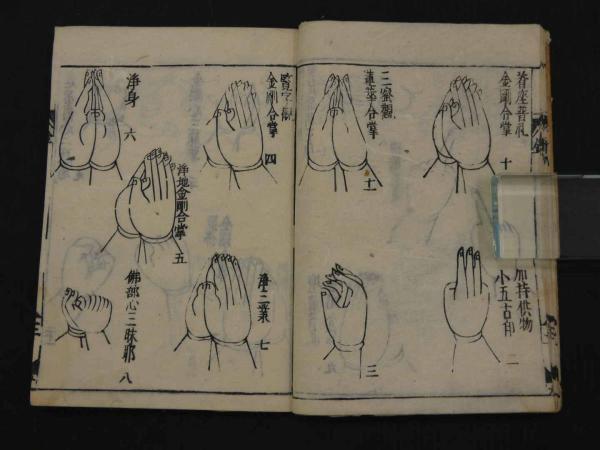 着座普礼
金剛合掌
十
加持供物
小五古印
二
三密觀
蓮華合掌
十一
三
覽字觀
金剛合掌
四
淨地金剛合掌
五
淨身
六
淨三業
七
佛部心三昧耶
八